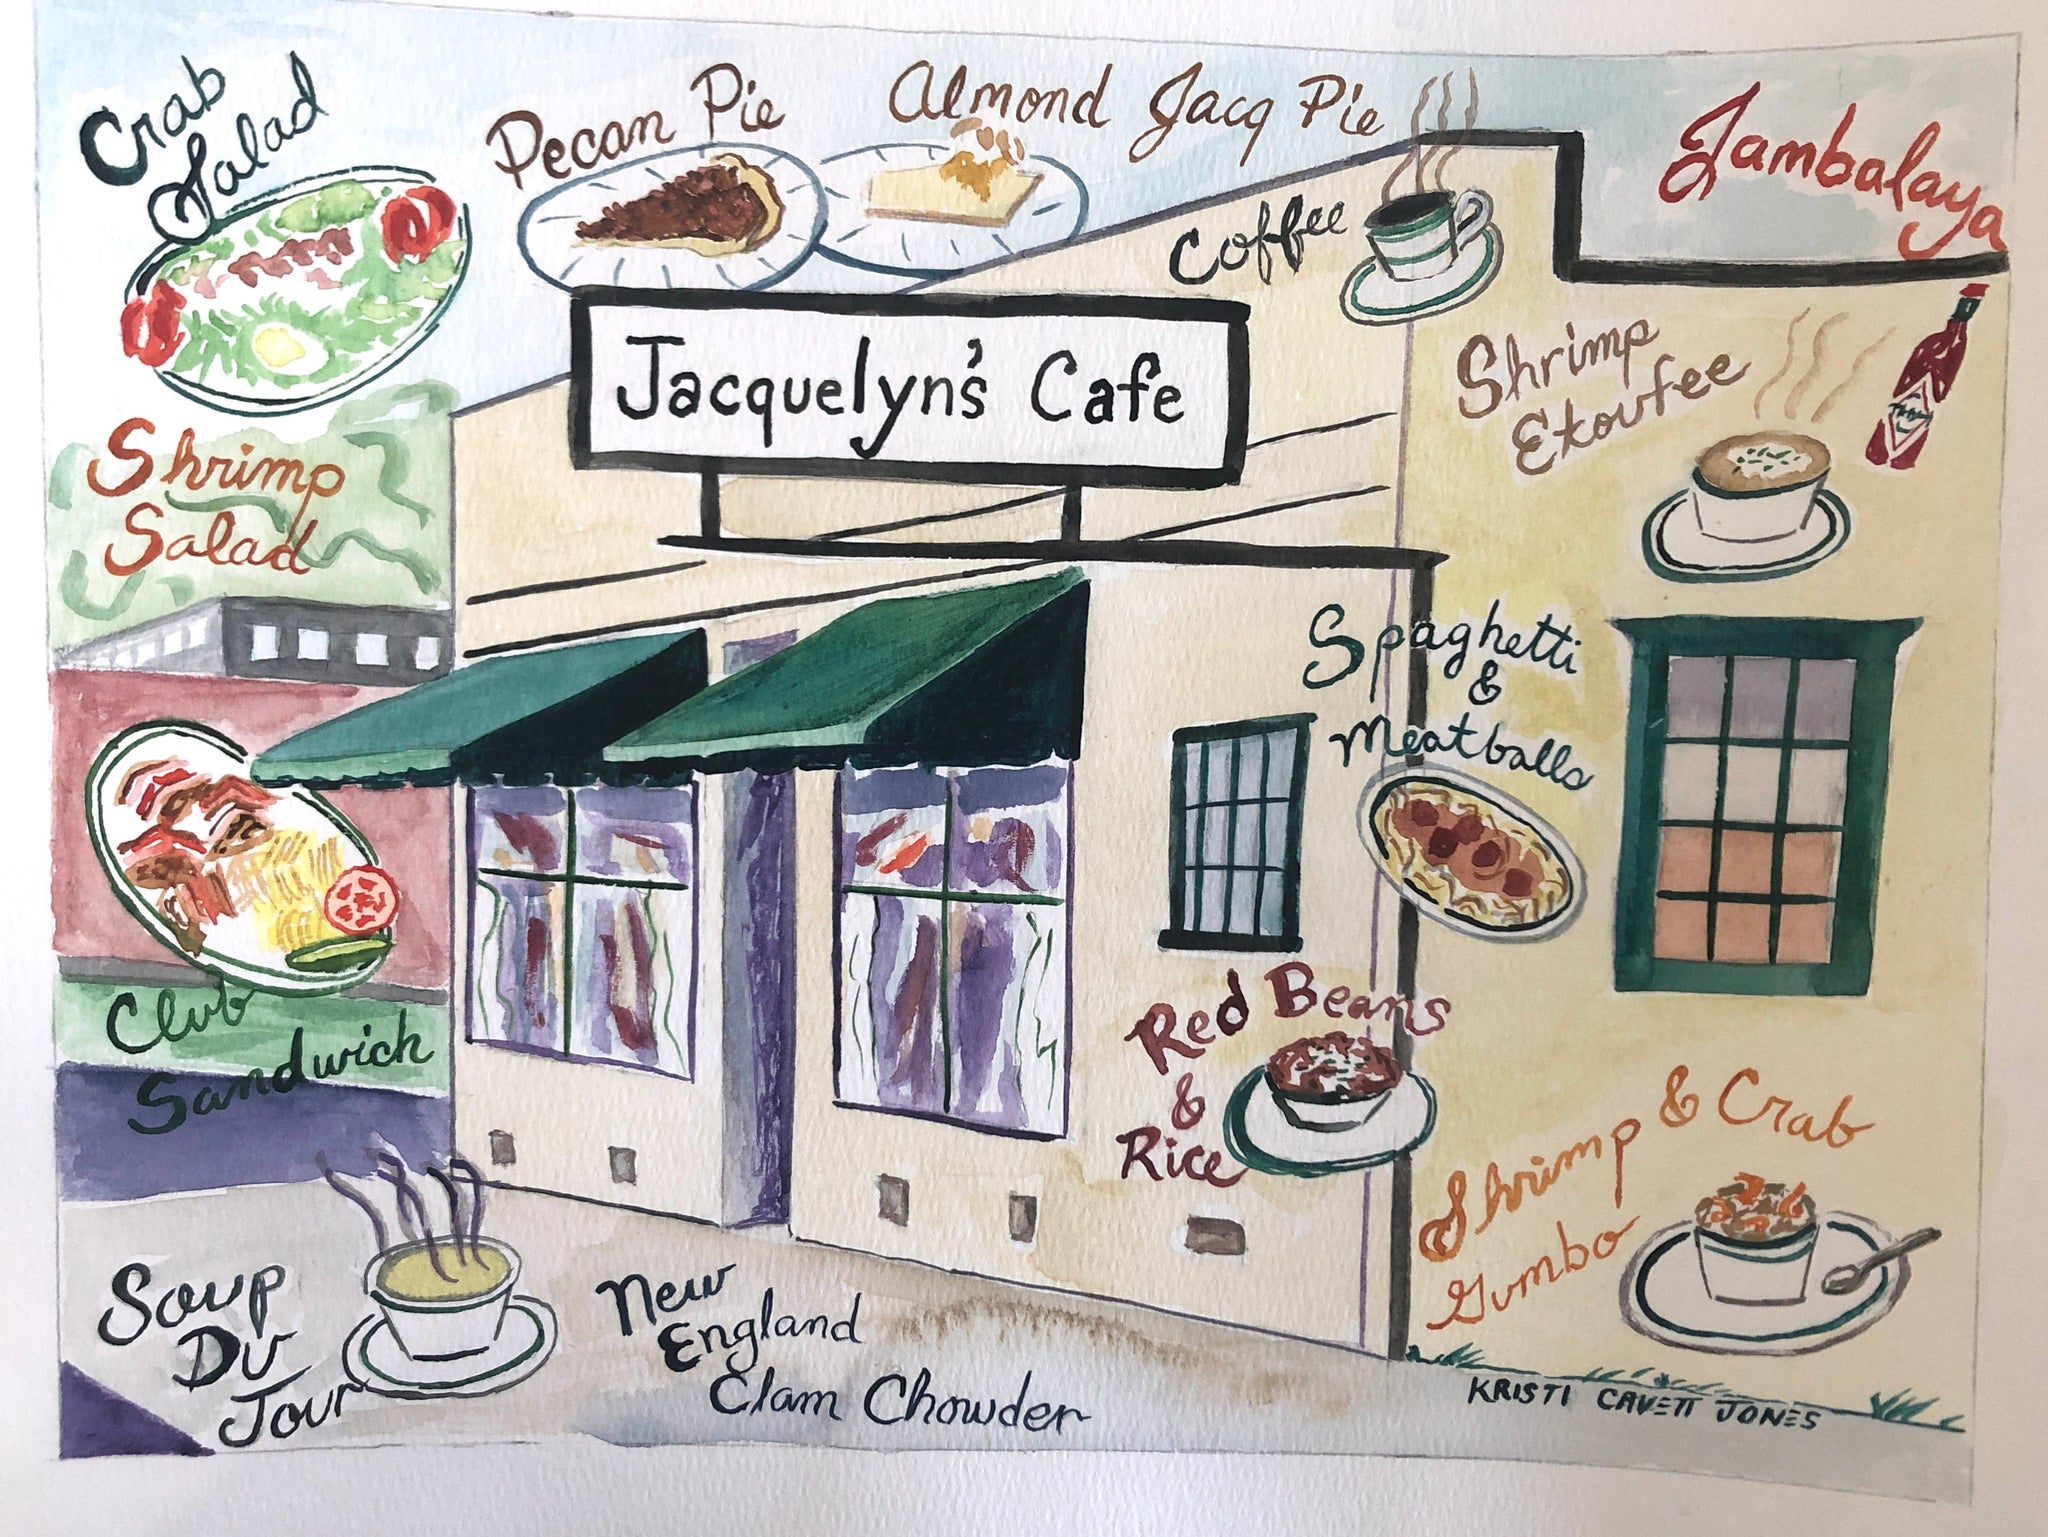 Crab
Salad
Pecan Pie
Almond Jacq Pie
Coffee
Jambalaya
Jacquelyn's Cafe
Shrimp
Ekoufee
Shrimp
Salad
Spaghetti
&
Meatballs
Club
Sandwich
Red Beans
&
Rice
Shrimp & Crab
Gumbo
Soup
Du
Jour
New
England
Clam Chowder
KRISTI CAVETT JONES